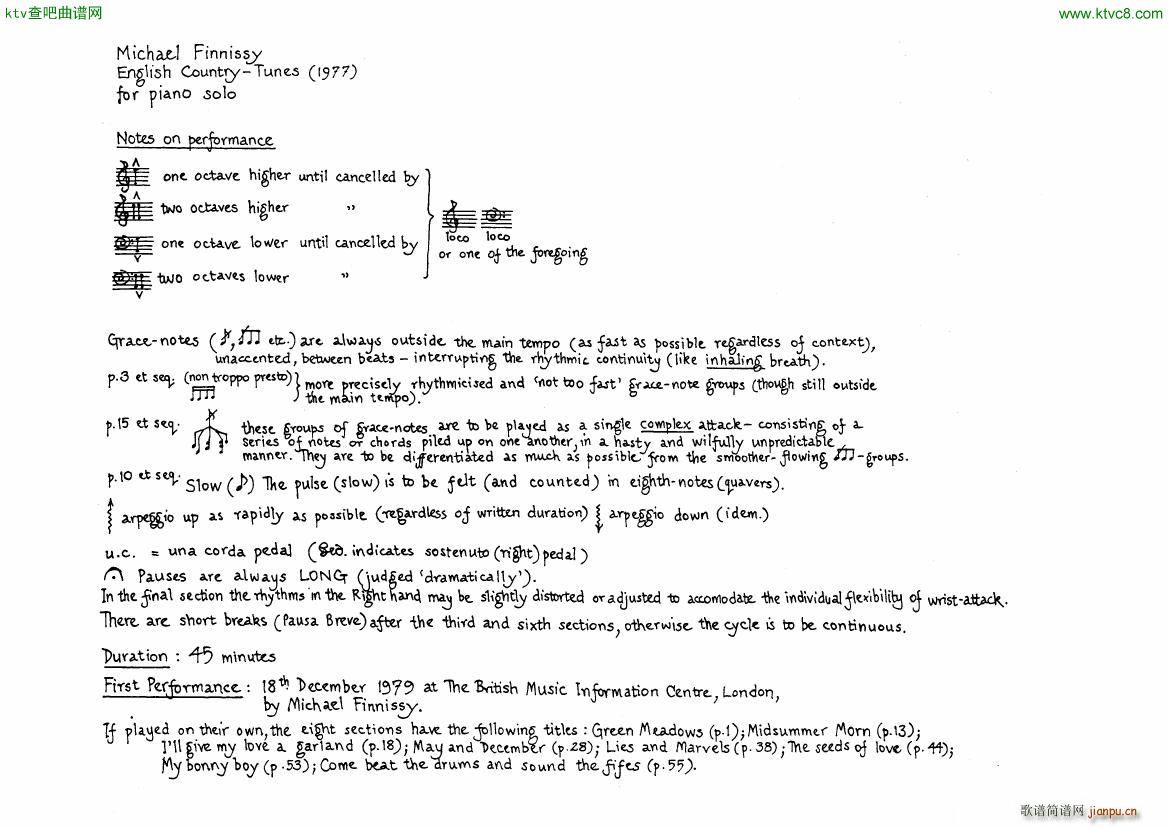 ktv查吧曲谱网
www.ktvc8.com
Michael Finnissy
English Country-Tunes (1977)
for piano solo
Notes on performance
one octave higher until cancelled by
two octaves higher "
one octave lower until cancelled by
two octaves lower "
loco loco
or one of the foregoing
Grace-notes ( , etc.) are always outside the main tempo (as fast as possible regardless of context),
unaccented, between beats - interrupting the rhythmic continuity (like inhaling breath).
p.3 et seq. (non troppo presto) } more precisely rhythmicised and 'not too fast' grace-note groups (though still outside
the main tempo).
p.15 et seq. these groups of grace-notes are to be played as a single complex attack - consisting of a
series of notes or chords piled up on one another, in a hasty and wilfully unpredictable
manner. They are to be differentiated as much as possible from the smoother-flowing -groups.
p.10 et seq. Slow (♪) The pulse (slow) is to be felt (and counted) in eighth-notes (quavers).
arpeggio up as rapidly as possible (regardless of written duration) arpeggio down (idem.)
u.c. = una corda pedal (Ped. indicates sostenuto (right) pedal)
Pauses are always LONG (judged 'dramatically').
In the final section the rhythms in the Right hand may be slightly distorted or adjusted to accomodate the individual flexibility of wrist-attack.
There are short breaks (Pausa Breve) after the third and sixth sections, otherwise the cycle is to be continuous.
Duration : 45 minutes
First Performance : 18th December 1979 at The British Music Information Centre, London,
by Michael Finnissy.
If played on their own, the eight sections have the following titles : Green Meadows (p.1); Midsummer Morn (p.13);
I'll give my love a garland (p.18); May and December (p.28); Lies and Marvels (p.38); The seeds of love (p.44);
My bonny boy (p.53); Come beat the drums and sound the fifes (p.55).
歌谱简谱网 jianpu.cn